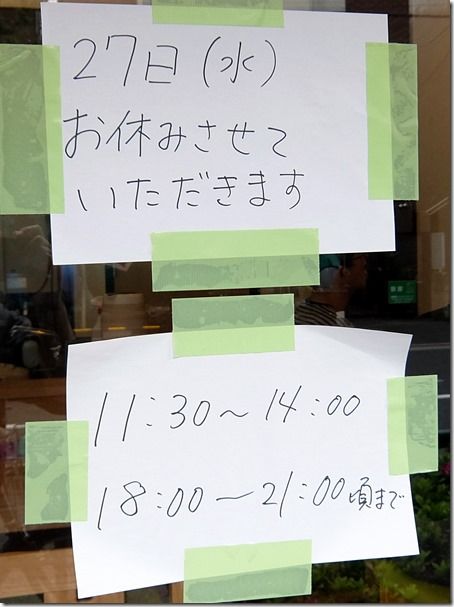 27日(水)
お休みさせて
いただきます
11:30～14:00
18:00～21:00頃まで